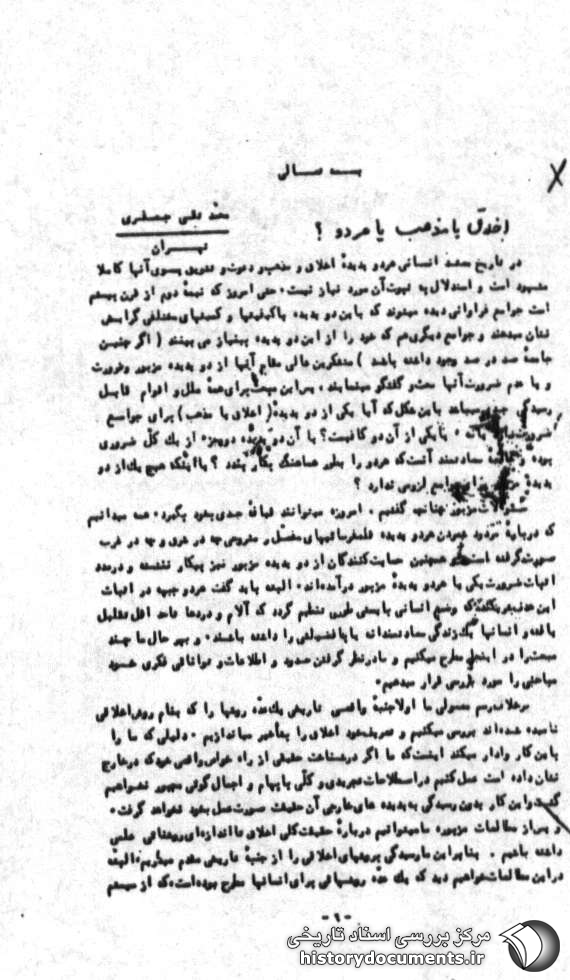 بسمه تعالی
محمد تقی جعفری
تهران
اخلاق یا مذهب یا هردو ؟
در تاریخ ممتد انسانی هردو پدیدهٔ اخلاق و مذهب و دعوت و تشویق بسوی آنها کاملا
مشهود است و استدلال به ثبوت آن مورد نیاز نیست . حتی امروز که نیمهٔ دوم از قرن بیستم
است جوامع فراوانی دیده میشوند که باین دو پدیده باکیفیتها و کمیتهای مختلفی گرایش
نشان میدهند و جوامع دیگری هم که خود را از این دو پدیده بینیاز می بینند ( اگر چنین
جامعهٔ صد در صد وجود داشته باشد ) متفکرین عالی مقام آنها از دو پدیده مزبور وضرورت
و یا عدم ضرورت آنها بحث و گفتگو مینمایند . بنابراین مبحث برای همهٔ ملل و اقوام قابل
رسیدگی جدی میباشد باین شکل که آیا یکی از دو پدیدهٔ ( اخلاق یا مذهب ) برای جوامع
ضرورت یا یکی از آن دو کافیست ؟ یا آن دو پدیده دو جزء از یک کل ضروری
بوده و سعادتمند آنست که هردو را بطور هماهنگ بکار بندد ؟ یا اینکه هیچ یک از دو
پدیدهٔ جوامع لزومی ندارد ؟
چنانچه گفتیم . امروزه میتوانند قیافهٔ جدی بخود بگیرد . همه میدانیم
که دربارهٔ مردود نمودن هردو پدیده قلمفرسائیهای مفصل و مشروحی چه در شرق و چه در غرب
صورت گرفته است و همچنین حمایت کنندگان از دو پدیده مزبور نیز بیکار ننشسته و درصدد
اثبات ضرورت یکی یا هردو پدیدهٔ مزبور درآمده‌اند . البته باید گفت هردو جبهه در اثبات
این هدف میکوشند که وضع انسانی بایستی طوری تنظیم گردد که آلام و دردها تا حد اقل تقلیل
یافته و انسانها یک زندگی سعادتمندانه یا بافضیلتی را داشته باشند . و بهر حال ما چند
مبحث را در اینجا مطرح میکنیم و با در نظر گرفتن حدود و اطلاعات و توانائی فکری خود
مباحثی را مورد بررسی قرار میدهیم .
برخلاف رسم معمولی ما اولا جنبهٔ واقعی تاریخی یک عده روشها را که بنام روش اخلاقی
نامیده شده‌اند بررسی میکنیم و تعریف خود اخلاق را بتأخیر میاندازیم . دلیلی که ما را
باین کار وادار میکند اینست که ما اگر در شناخت حقیقی از راه خواص واقعی خود که در خارج
نشان داده است عمل کنیم در اصطلاحات تجریدی و کلی با ابهام و اجمال گوئی مجبور نخواهیم
گشت و این کار بدون رسیدگی به پدیده های خارجی آن حقیقت صورت عمل بخود نخواهد گرفت .
و پس از مطالعات مزبوره ما میتوانیم دربارهٔ حقیقت کلی اخلاق تا اندازه‌ای روشنائی علمی
داشته باشیم . بنابراین ما رسیدگی بروشهای اخلاقی را از جنبهٔ تاریخی مقدم میداریم . البته
در این مطالعات خواهیم دید که یک عده روشهائی برای انسانها مطرح بوده است که از سیستم
-۱-
مرکز بررسی اسناد تاریخی
historydocuments.ir